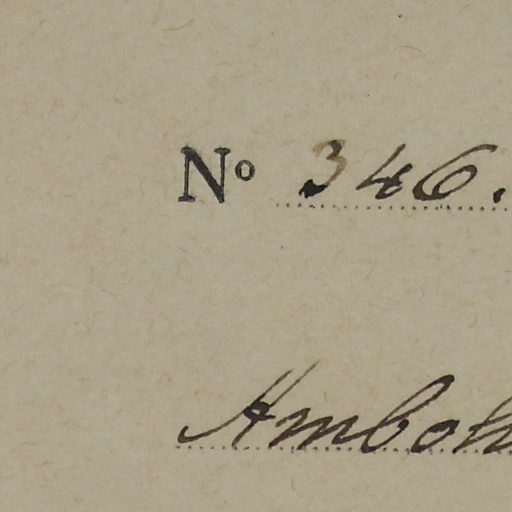 Nº 346.
Amboh